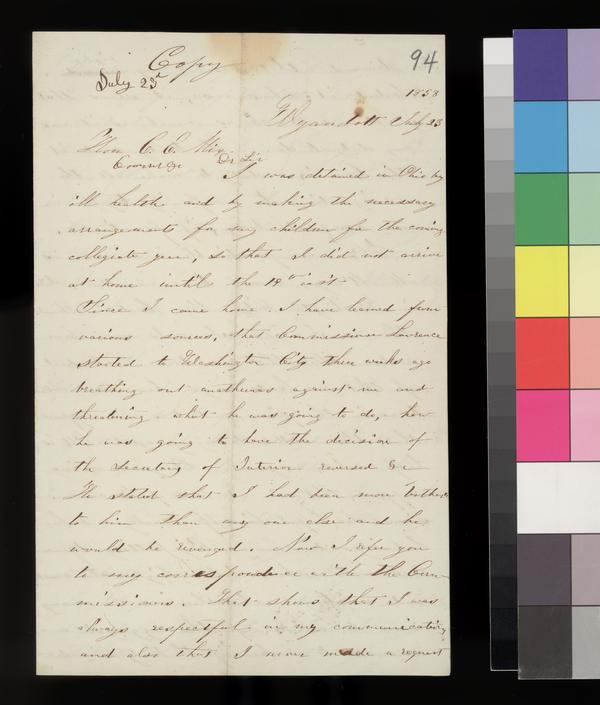 Copy
94
July 23d
1858
Wyandott July 23
Hon C. E. Mix
Comr &c Dr Sir
I was detained in Ohio by
ill health and by making the necessary
arrangements for my children for the coming
collegiate year, so that I did not arrive
at home until the 19th inst
Since I came home I have learned from
various sources, that Commissioner Lawrence
started to Washington City three weeks ago
breathing out anathemas against me and
threatening what he was going to do, how
he was going to have the decision of
the Secretary of Interior reversed &c
He stated that I had been more bother
to him than any one else and he
would be revenged. Now I refer you
to my correspondence with the Com-
missioners. That shows that I was
always respectful in my communications
and also that I never made a request